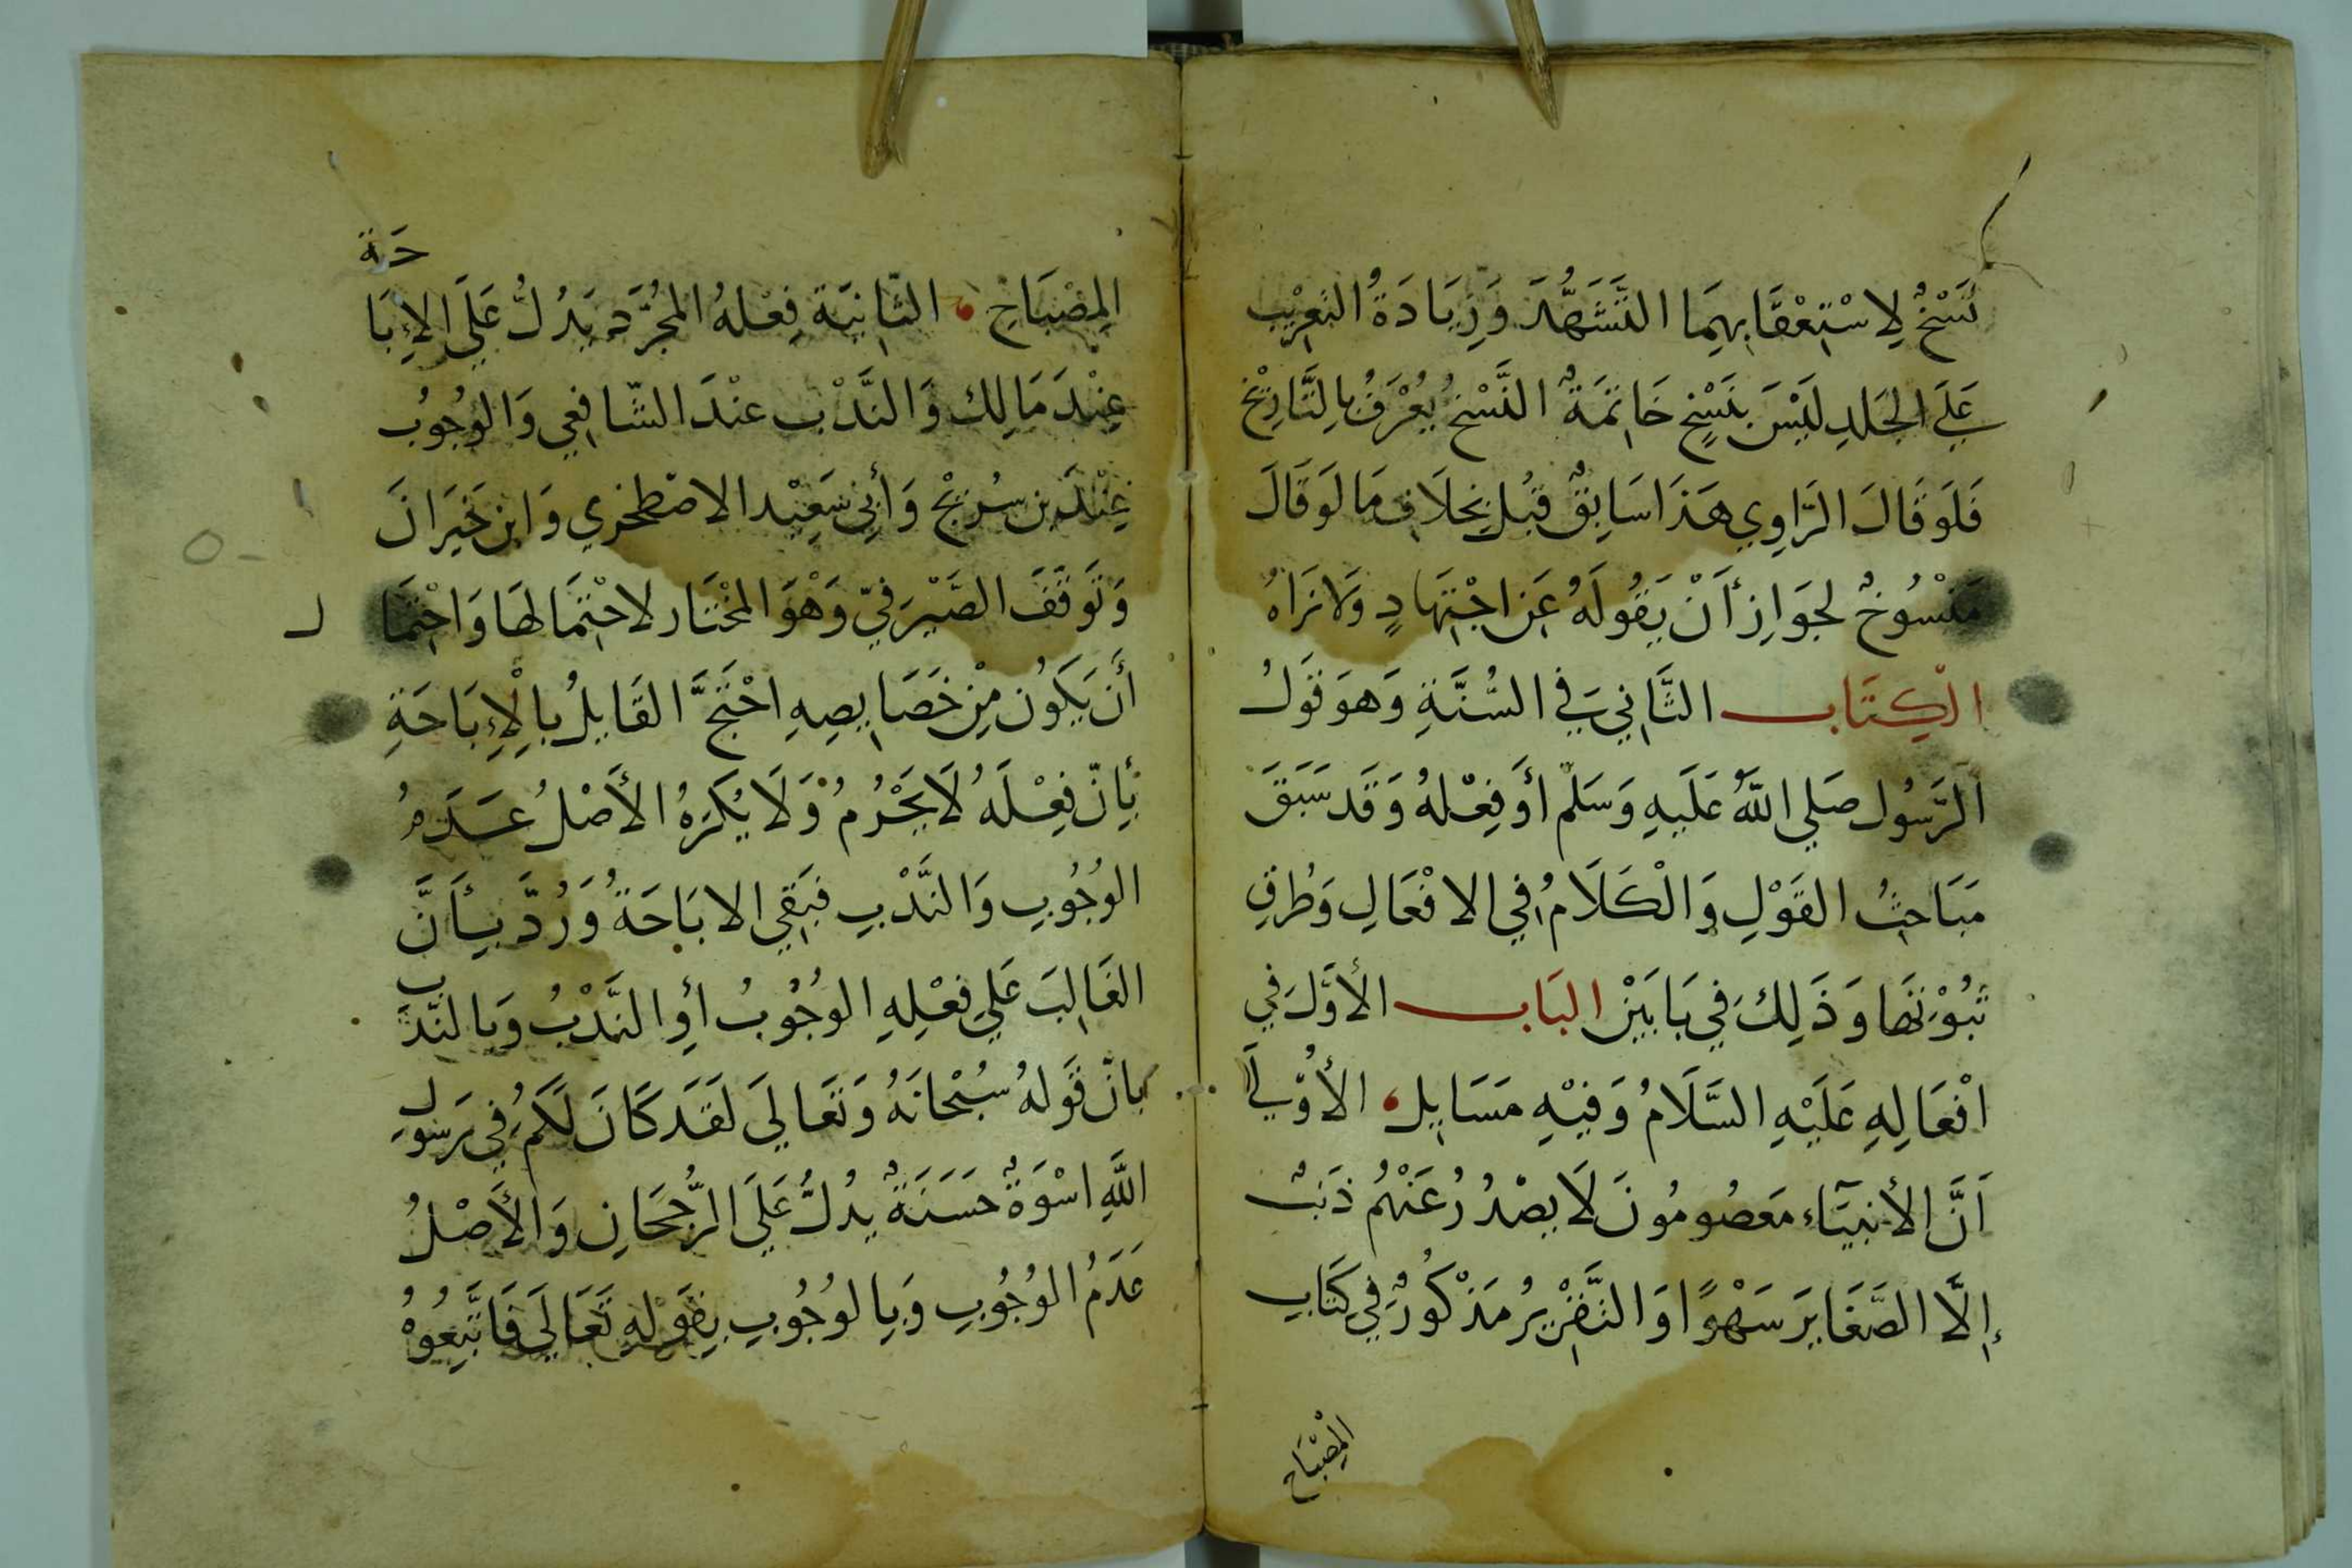 نَسْخٌ لِاسْتِعْقَابِهِمَا التَّشَهُّدَ وَزِيَادَةُ التَّغرِيْب
عَلَى الجَلدِ لَيْسَ بِنَسْخٍ خَاتِمَةٌ النَّسْخ يُعْرَفُ بِالتَّارِيْخ
فَلَو قَالَ الرَّاوِي هَذَا سَابِقٌ قُبِلَ بِخلَافِ مَا لَو قَالَ
مَنْسُوخٌ لجَوَازِ أَنْ يَقُولَهُ عَن اجْتِهَادٍ وَلَا نَرَاهُ
الْكِتَاب الثَّانِي فِي السُّنَّةِ وَهوَ قَولُ
الرَّسُول صَلي اللَّهُ عَلَيهِ وَسَلّم أوَ فِعْلهُ وَقَد سَبَقَ
مَبَاحِثُ القَوْلِ وَالْكَلَامُ فِي الافْعَالِ وَطُرقِ
ثُبُوْتهَا وَذَلِكَ فِي بَابَيْنِ البَاب الأوَّلَ في
افْعَالِهِ عَلَيْهِ السَّلَامُ وَفِيْهِ مَسَايِل الأوْلَي
اَنَّ الأنبيَآءِ مَعصُومُونَ لَا يصْدُرُ عَنْهُم ذَنبٌ
إِلَّا الصَّغَايرَ سَهْوًا وَالتَّقْرِيرُ مَذْكُورٌ فِي كَتَابِ
المِصْبَاح
المِصْبَاحِ الثَّانِيَة فِعْلهُ المُجرَّد يَدُلُّ عَلَي الإبَا
حَة
عِنْدَ مَالِك وَالنَّدْب عنْدَ الشَّافِعِي وَالوُجُوب
عِنْدَ بن سُرَيْج وَأبي سَعِيْد الاصْطخري وَابن خَيرَانَ
وَتَوقّفَ الصَّيْرَفيّ وَهْوَ المخْتَار لاحْتِمَالهَا وَاحْتِمَا
ل
أَن يَكُون مِنْ خَصَايصِهِ احْتَجَّ القَايلُ بِالْإِبَاحَةِ
بأِنّ فِعْلَهُ لَا يَحْرُمُ وَلَا يُكرَهُ الأَصْلُ عَدَمُ
الوُجُوبِ وَالنَّدْبِ فبَقِي الابَاحَةُ وَرُدَّ بِأَنَّ
الغَالِبَ عَلي فعْلِهِ الوُجُوبُ أوِ النَّدْبُ وَبالنَّدَ
ب
بانّ قَولهُ سُبْحَانَهُ وَتَعَالي لَقَد كَانَ لَكُم فِي رَسُو
ل
اللَّهِ اسْوَةٌ حَسَنَةٌ يدُلُّ عَلَي الرُّجحَانِ وَالأَصْلُ
عَدَمُ الوُجُوبِ وَبِالوُجُوبِ بِقَولِهِ تَعَالَى فَاتَّبِعُوهُ